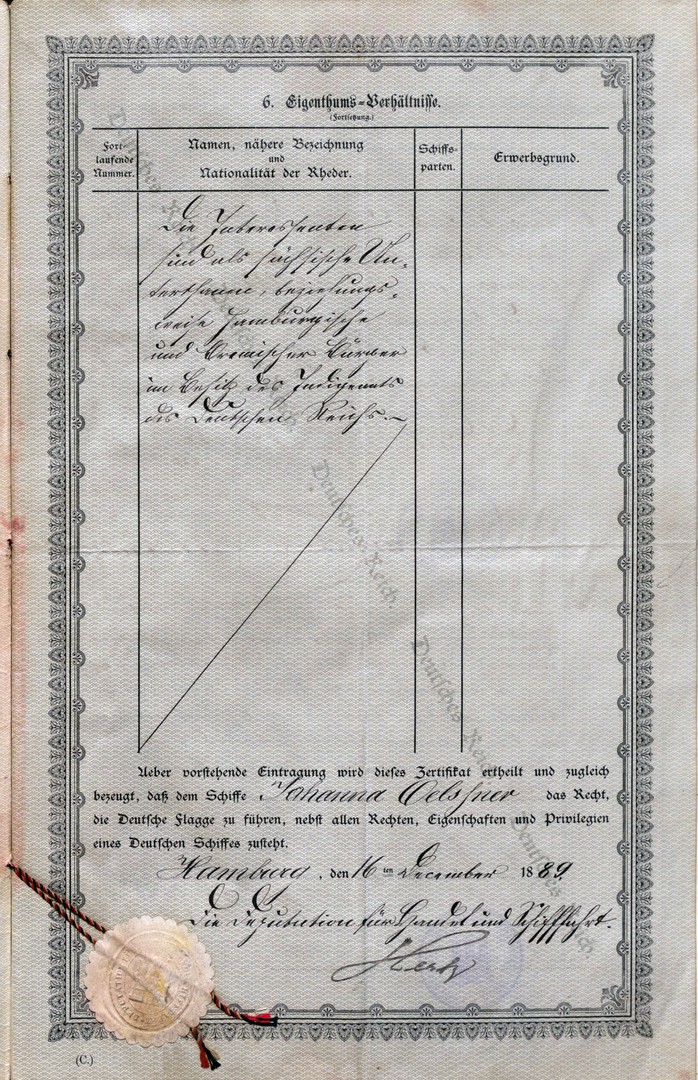 6. Eigenthums-Verhältnisse.
(Fortsetzung.)
Fort-
laufende
Nummer.
Namen, nähere Bezeichnung
und
Nationalität der Rheder.
Schiffs-
parten.
Erwerbsgrund.
Die Interessenten
sind als sächsische Un-
terthanen, beziehungs-
weise hamburgische
und Bremischer Bürger
im Besitz des Indigenats
des Deutschen Reichs.
Deutsches Reich
Deutsches Reich
Deutsches Reich
Deutsches Reich
Ueber vorstehende Eintragung wird dieses Zertifikat ertheilt und zugleich
bezeugt, daß dem Schiffe Johanna Oelssner das Recht,
die Deutsche Flagge zu führen, nebst allen Rechten, Eigenschaften und Privilegien
eines Deutschen Schiffes zusteht.
Hamburg, den 16ten December 1889.
Die Deputation für Handel und Schifffahrt.
Hertz
(C.)